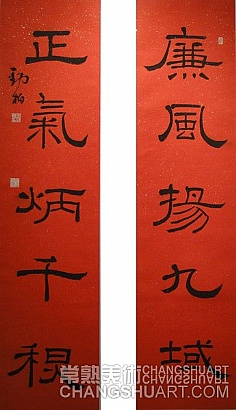 廉風揚九域
正氣炳千
勁柏
常熟美術CHANGSHUART
CHANGSHUART.COM